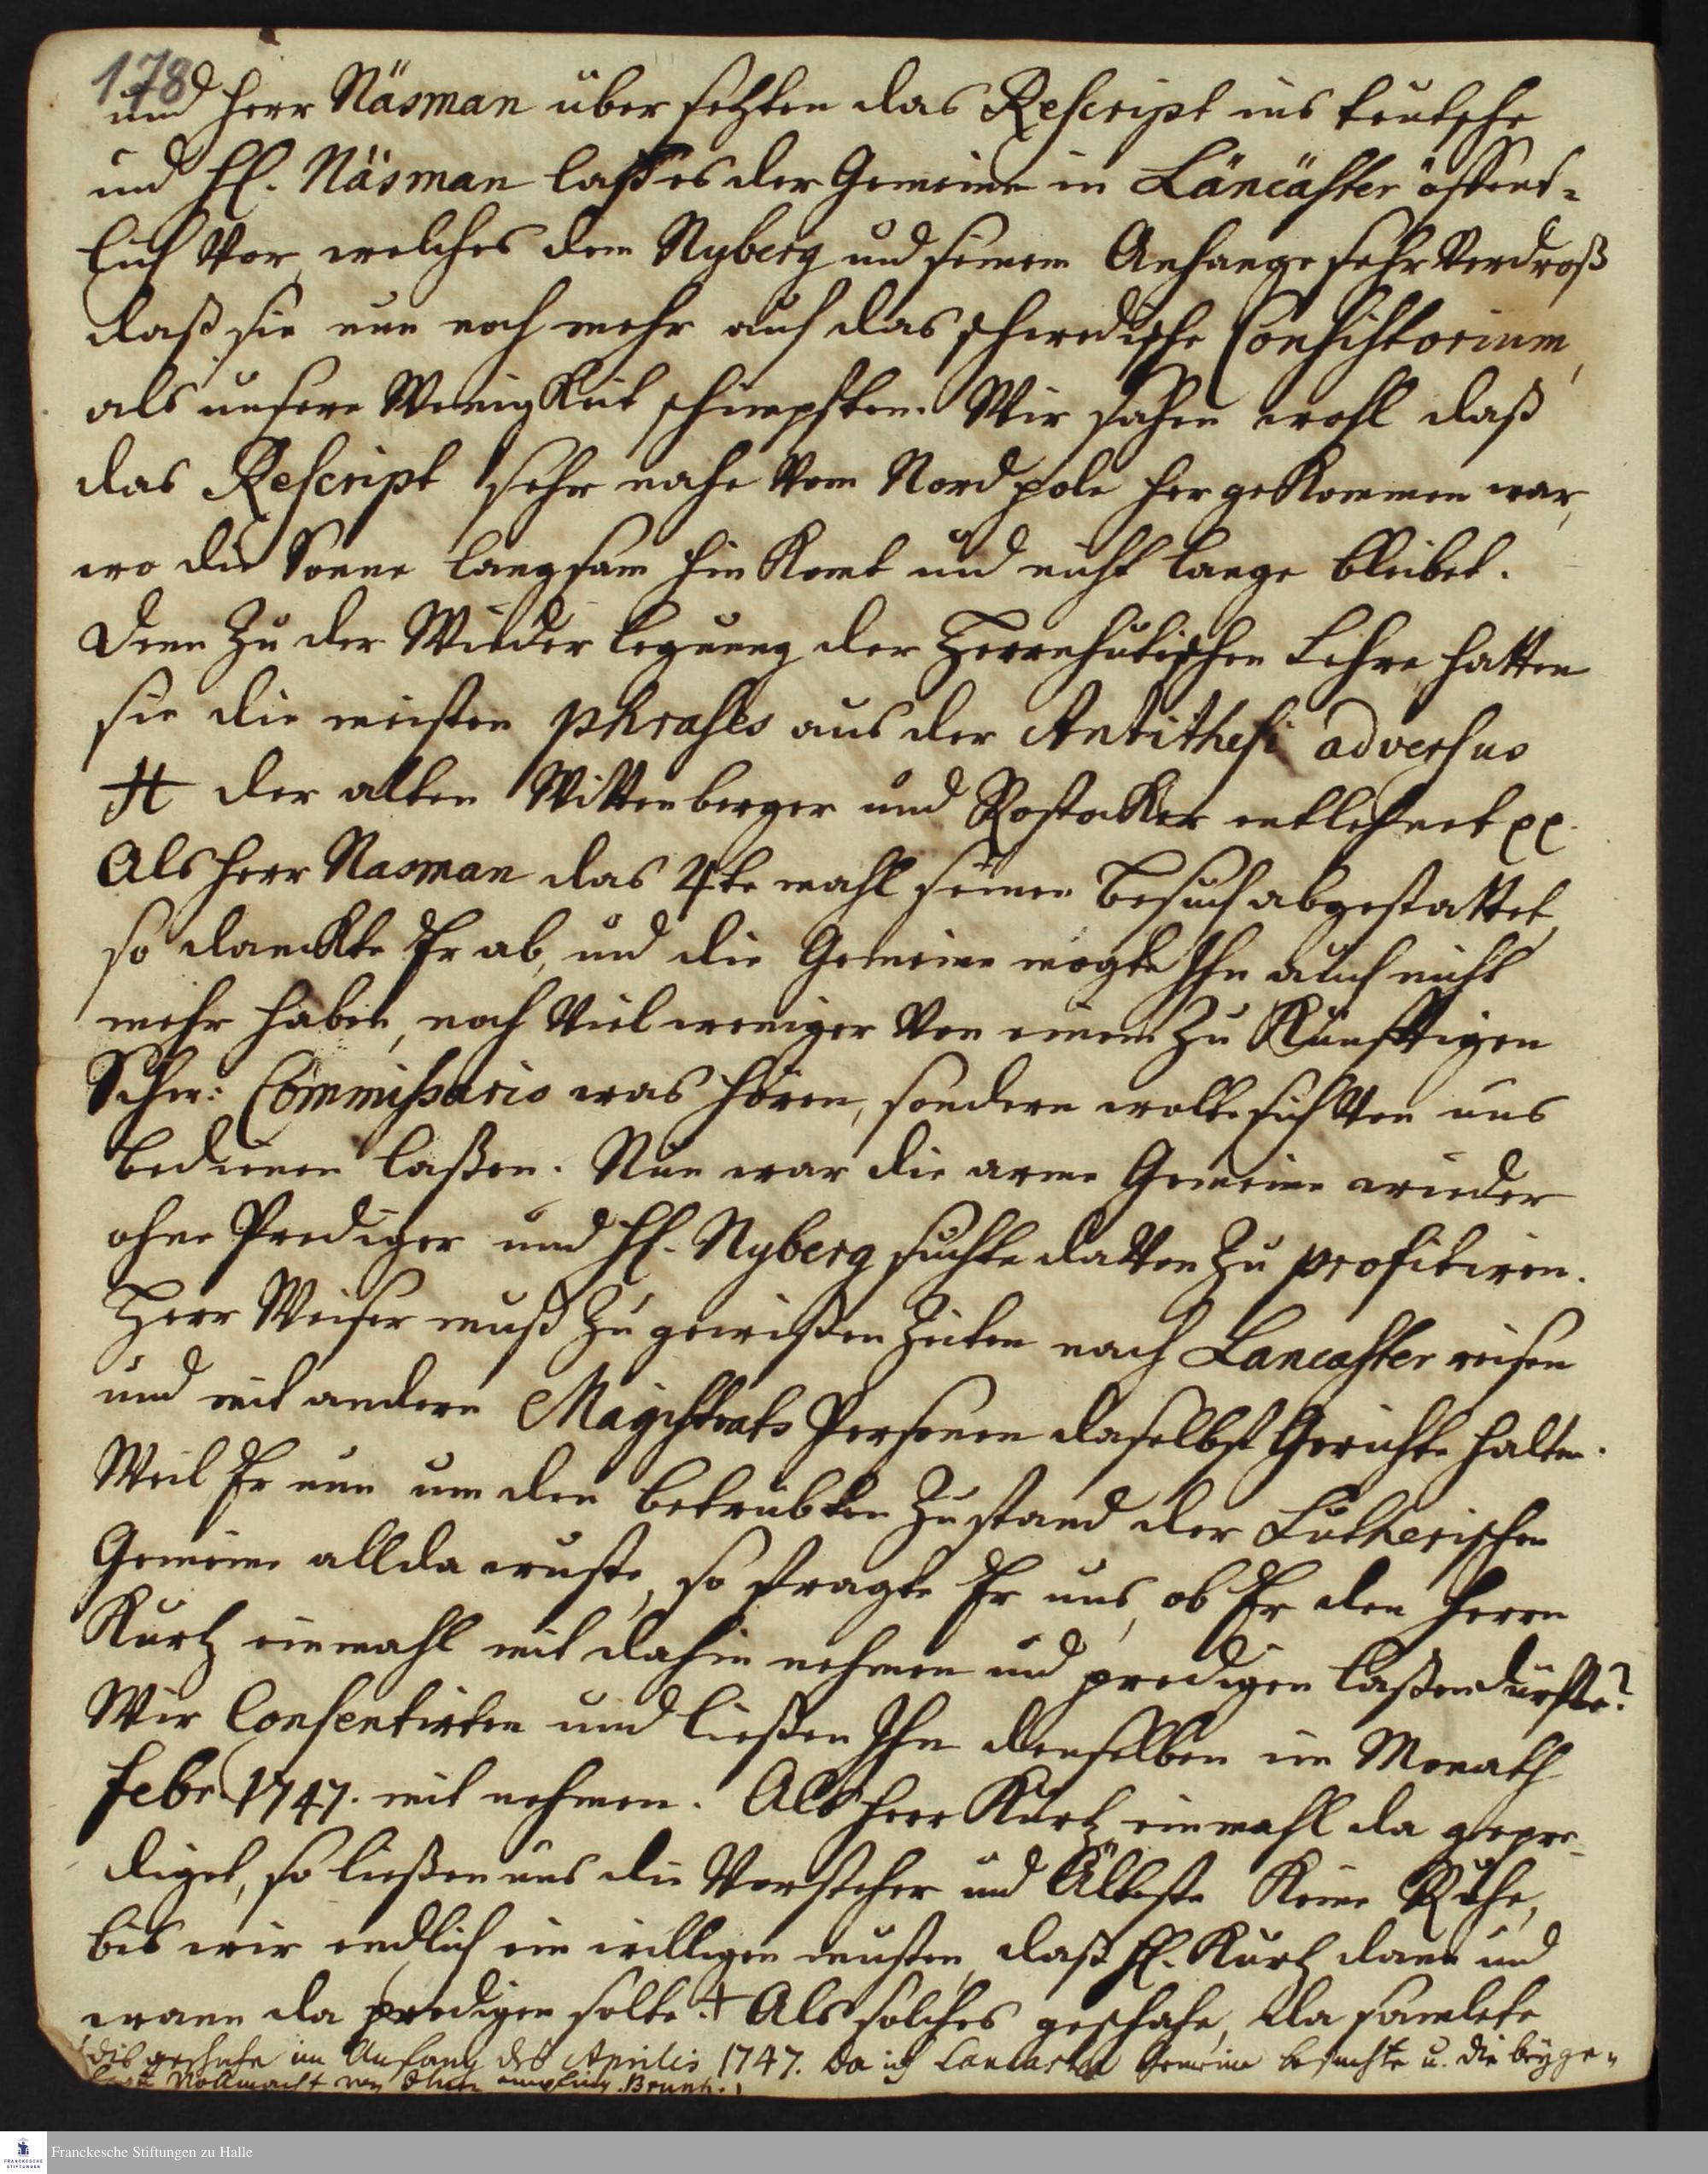 178
und Herr Näsman übersetzten das Rescript ins teutsche
und H. Näsman laß es der Gemeine in Läncäster öffent-
lich vor, welches dem Nyberg und seinem Anhange sehr verdroß
daß sie nun noch mehr auf das schwedische Consistorium,
als unsere Wenigkeit schimpften. Wir sahen wohl daß
das Rescript sehr nahe vom Nordpole her gekommen war,
wo die Sonne langsam hin komt und nicht lange bleibet.
Denn zu der Wiederlegung der Herrnhutischen Lehre hatten
sie die meisten phrases aus der Antithesi adversus
H der alten Wittenberger und Rostocker entlehnet pp.
Als Herr Nasman das 4te mahl seinen Besuch abgestattet,
so danckte Er ab, und die Gemeine mogte Ihn auch nicht
mehr haben, noch viel weniger von einem zu Künfftigen
Schw: Commissario was hören, sondern wolte sich von uns
bedienen laßen. Nun war die arme Gemeine wieder
ohne Prediger und H. Nyberg suchte davon zu profitiren.
Herr Weiser muß zu gewißen Zeiten nach Lancaster reisen
und mit andern Magistrats Personen daselbst Gerichte halten.
Weil Er nun um den betrübten Zustand der Lutherischen
Gemeine allda wuste, so fragte Er uns, ob Er den Herrn
Kurtz einmahl mit dahin nehmen und predigen laßen dürfte?
Wir Consentirten und ließen Ihn denselben im Monath
Febr. 1747. mit nehmen. Als Herr Kurtz einmahl da gepre-
diget, so ließen uns die Vorsteher und Älteste keine Ruhe,
bis wir endlich ein willigen musten, daß H. Kurtz dann und
wann da predigen solte.+ Als solches geschahe, da samlete
(dis geschahe im Anfang des Aprilis 1747. da ich Lancaster Gemeine besuchte u. die beyge-
Vollmacht von Brunh.)
Franckesche Stiftungen zu Halle
FRANCKESCHE
STIFTUNGEN